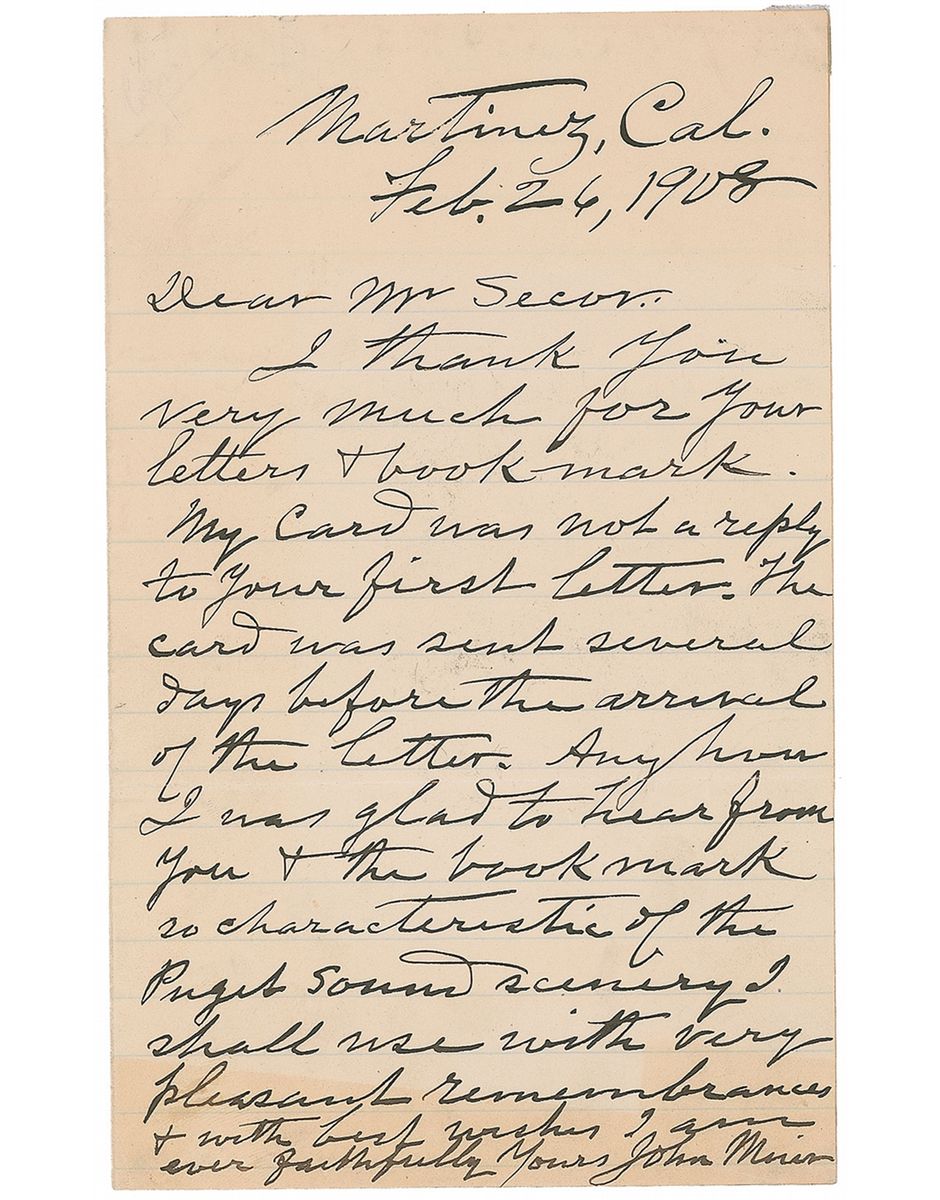 Martinez, Cal.
Feb. 26, 1908
Dear Mr Secor:
I thank You
very much for Your
letters & book-mark.
My card was not a reply
to Your first letter. The
card was sent several
days before the arrival
of the letter. Anyhow
I was glad to hear from
You & the bookmark
so characteristic of the
Puget Sound scenery I
shall use with very
pleasant remembrances
& with best wishes I am
ever faithfully Yours John Muir